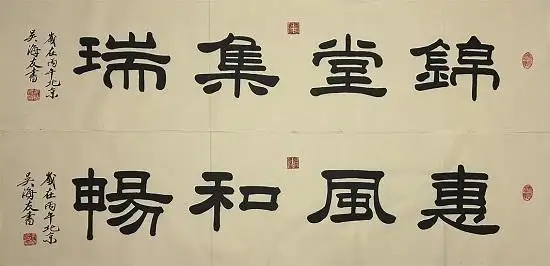 錦堂集瑞
歲在丙午北京
吴海友書
惠風和暢
歲在丙午北京
吴海友書